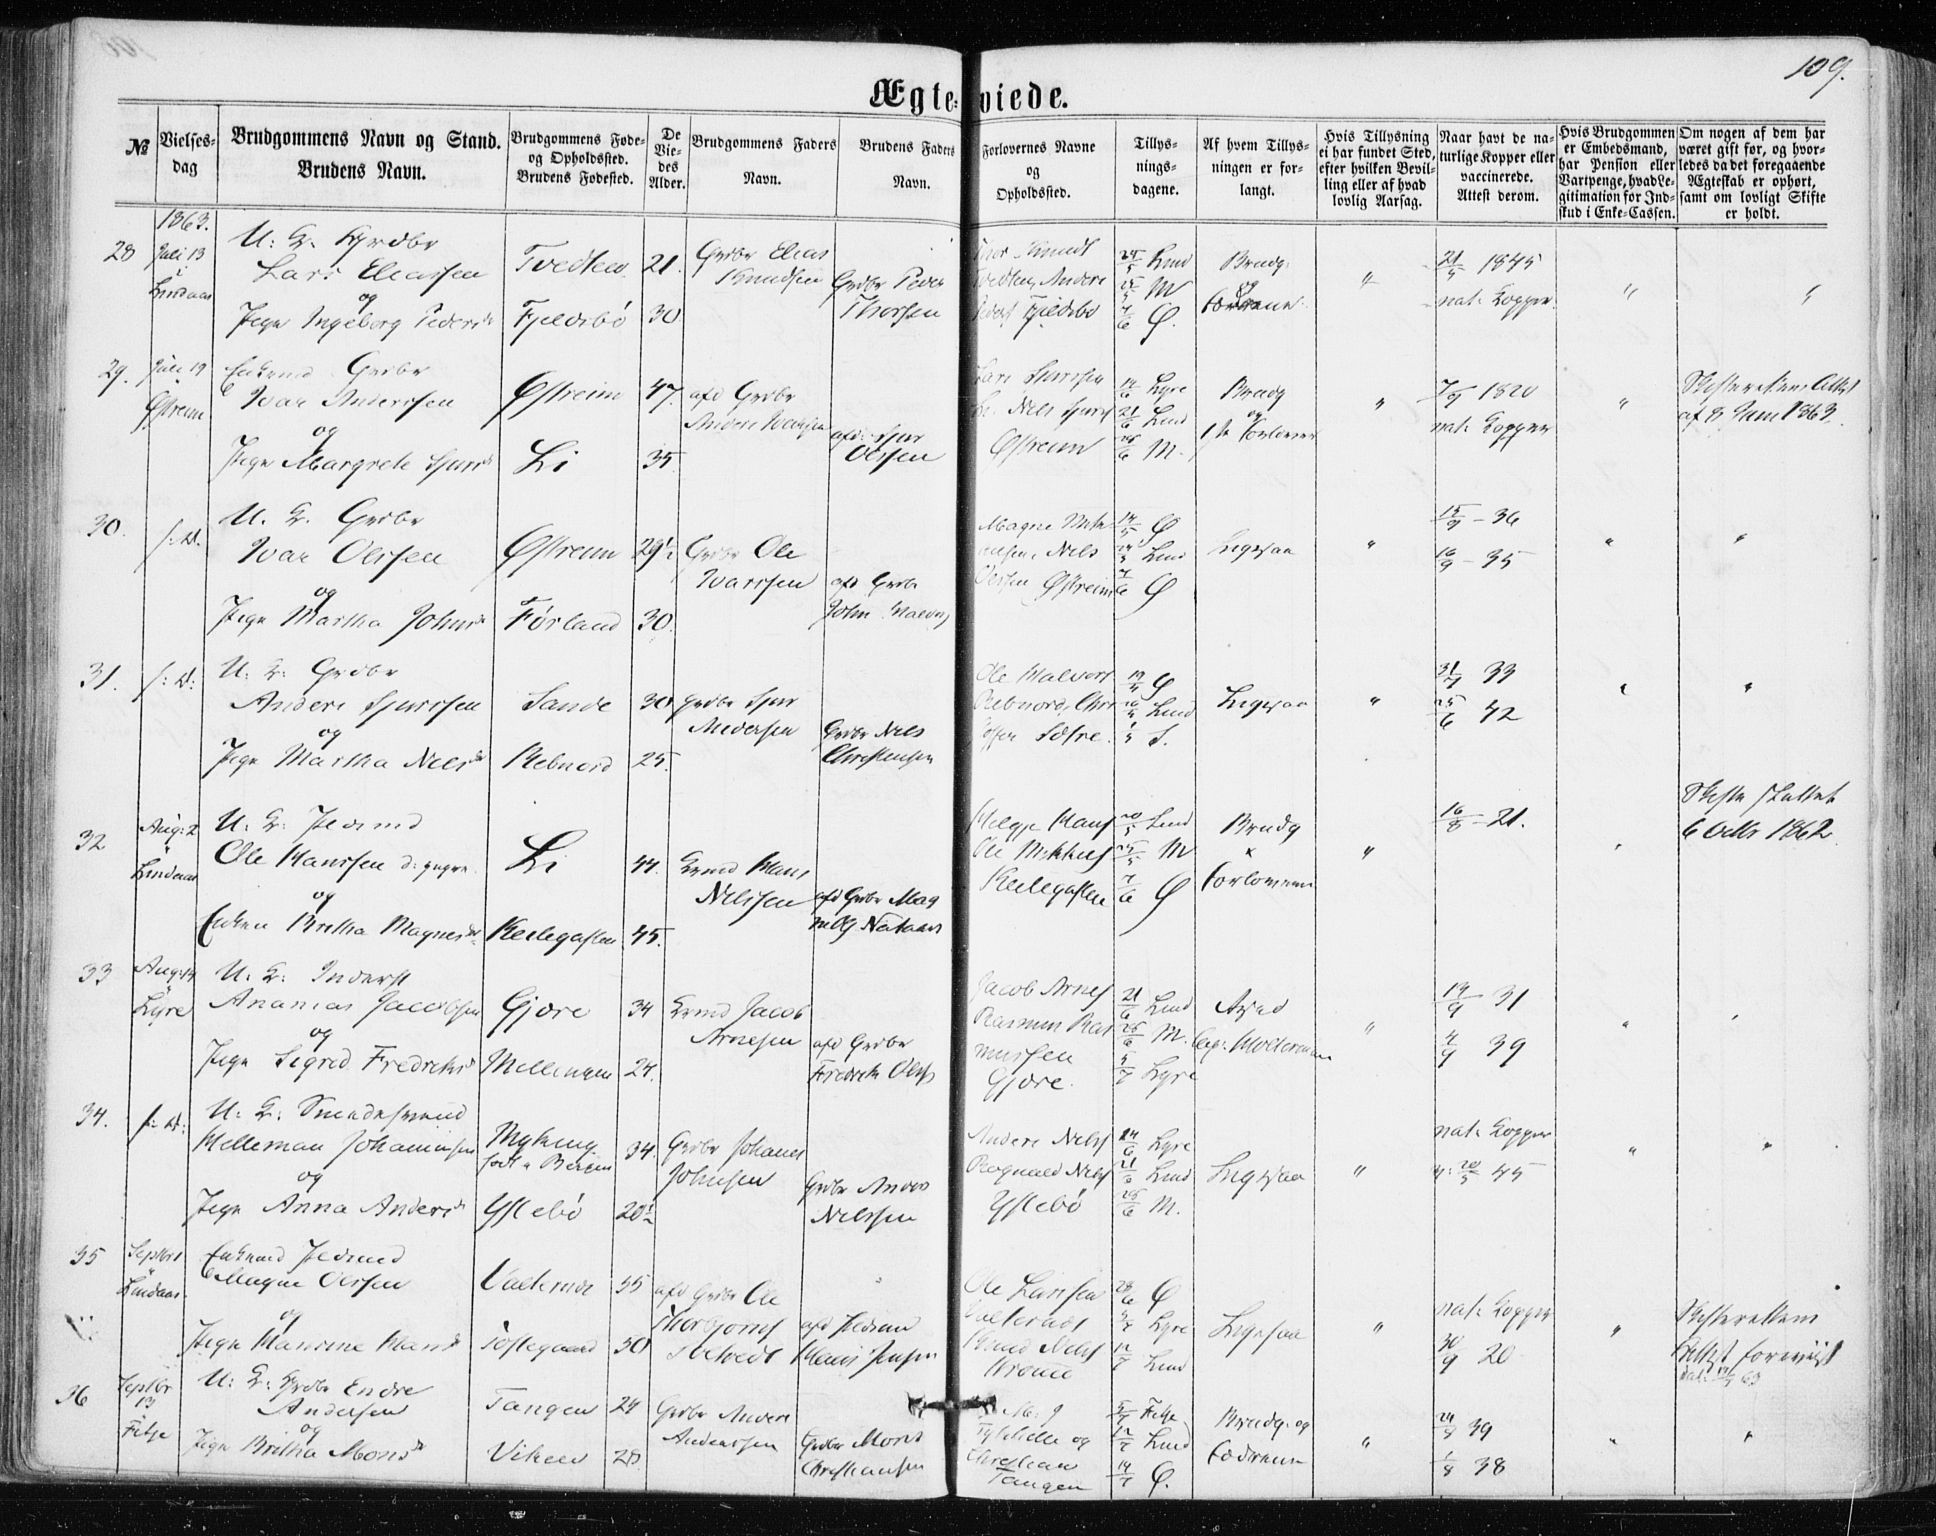 109.
Ægteviede.
№
Vielses-
dag
Brudgommens Navn og Stand.
Brudens Navn.
Brudgommens Føde-
og Opholdssted.
Brudens Fødested.
De
Vie-
des
Alder.
Brudgommens Faders
Navn.
Brudens Faders
Navn.
Forlovernes Navne
og
Opholdssted.
Tillys-
nings-
dagene.
Af hvem Tillys-
ningen er for-
langt.
Hvis Tillysning
ei har fundet Sted,
efter hvilken Bevil-
ling eller af hvad
lovlig Aarsag.
Naar havt de na-
turlige Kopper eller
vaccinerede.
Attest derom.
Hvis Brudgommen
er Embedsmand,
har Pension eller
Vartpenge, hvad Le-
gitimation for Ind-
skud i Enke-Cassen.
Om nogen af dem har
været gift før, og hvor-
ledes da det foregaaende
Ægteskab er ophørt,
samt om lovligt Skifte
er holdt.
1863.
28
Juli 13
Lindaas
U: K. Grdbr
Lars Eliassen
og
Pige Ingeborg Pedersd
Tvedten
Fjeldsbö
21.
30
Grdbr Elias
Knudsen
Grdbr Peder
Thorsen
Thor Knuds
Tvedten, Anders
Peders Fjeldsbö
24/5 Lind
25/5 M
7/6 Ø.
Brudg:
og
Fædrene
"
21/5 1845
nat: Kopper
"
"
29.
Juli 19
Østreim
Enkemd Grdbr
Ivar Anderssen
og
Pige Margrete Sjursd
Østreim
Li
47.
35.
afd Grdbr
Anders Ivarssen
afd: Sjur
Olssen
Lars Sjurssen
Li, Nels Sjurs
Østreim
14/6 Lyre
21/6 Lind
28/6 M.
Brudg
og
1ste Forlover
"
7/9 1820
nat: Kopper
"
Skifterettens Attest
af 8 Juni 1863.
30.
s: D.
U. K. Grdbr
Ivar Olssen
og
Pige Martha Johnsd
Østreim
Førland
29½
30.
Grdbr Ole
Ivarssen
afd Grdbr
John Halvors
Magne
Nels
Olssen Østreim
14/5 Ø
24/5 Lind
7/6 Ø
Ligesaa
"
15/9 - 36
16/9 - 35
"
"
31.
s: D:
U: K: Grdbr
Anders Sjurssen
og
Pige Martha Nelsd
Sande
Rebnord
30
25.
Grdbr Sjur
Anderssen
Grdbr Nels
Christensen
Ole Halvors
Rebnord, Chri
19/4 Ø
26/4 Lind
1/5 S.
Ligesaa
"
31/7 33
25/6 42
"
"
32
Aug: 2
Lindaas
U: K: Pladsmd
Ole Hanssen d: yngre
og
Enken Britha Magnesdr
Li
Keilegaften
44.
45.
Grmd Hans
Nelssen
afd Grdbr Mag
Nataas
Helge Hans
Ole Mikkels
Keilegaften
20/5 Lind
25/5 M
7/6 Ø
Brudg
x
Forloveren
"
16/8 - 21.
Skifte sluttet
6 Octbr 1862
33
Aug: 14
Lyre
U: K: Inderst
Ananias Jacobsen
og
Pige Sigrid Fredriksd
Gjøre
Mellingen
34
24.
Grmd Jacob
Arnesen
afd Grdbr
Fredrik Olss
Jacob Arnes
Rasmus Ras
mussen
Gjøre.
21/6 Lind
28/6 M.
5/7 Lyre
"
19/9 31
4/9 39
"
34.
s: D:
U: K: Smedesvend
Helleman Johannesen
og
Pige Anna Andersd
Myking
født i Bergen
Ystebö
34.
20½
Grdbr Johanes
Johnsen
Grdbr Anders
Nelssen
Anders Nelss
Rognald Nelss
Ystebö
14/6 Lyre
21/6 Lind
28/6 M.
Ligesaa
"
nat: Kopper
v: 20/5 45
"
"
35
Septbr 1
Lindaas
Enkemd Pladsmd
Magne Olssen
og
Pige Hansine Hansd
Tostegaard
35
30
afd Grdbr Ole
Thorbjørns
Tvetvedt
afd Pladsm
Hans Jensen
Ole Larssen
Knud Nelss
28/6 Ø
5/7 Lyre
12/7 Lind
Ligesaa
"
nat: Kopper
30/9 20
"
Skifterettens
Attest forevist
36
Septbr
13
Fitje
U: K: Grdbr Endre
Anderssen
og
Pige Britha Monsd
Tangen
Viken
24
28
Grdbr Anders
Anderssen
Grdbr Mons
Christiansen
og
Christian
Tangen
5/7 Fitje
12/7 Lind
19/7 Ø.
Brudg. og
Fædrene
"
24/8 39
1/8 38
"
"